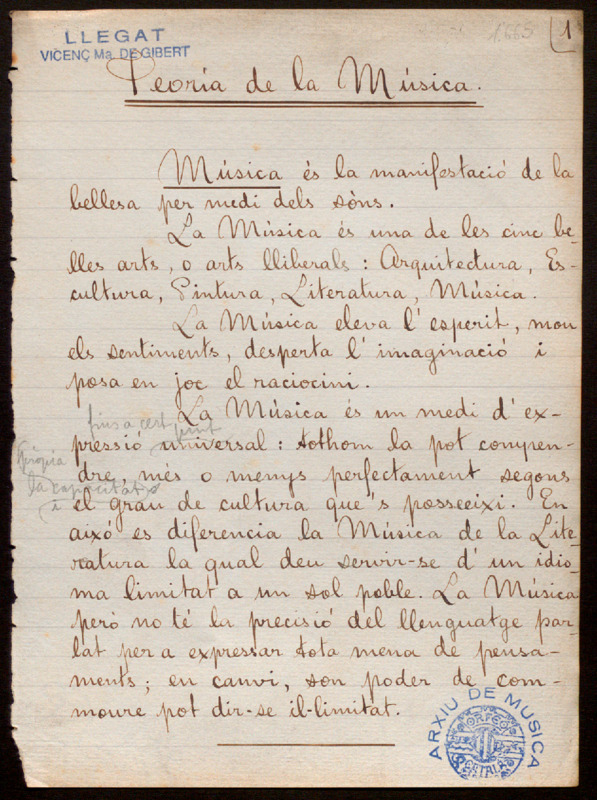 LLEGAT
VICENÇ Mª DE GIBERT
1
Teoría de la Música.
Música és la manifestació de la
bellesa per medi dels sòns.
La Música és una de les cinc be-
lles arts, o arts lliberals: Arquitectura, Es-
cultura, Pintura, Literatura, Música.
La Música eleva l'esperit, mou
els sentiments, desperta l'imaginació i
posa en joc el raciocini.
La Música és un medi d'ex-
fins a cert punt
pressió universal: tothom la pot compen-
dre més o menys perfectament segons
la capacitat i
el grau de cultura que's posseeixi. En
aixó es diferencia la Música de la Lite-
ratura la qual deu servir-se d'un idio-
ma limitat a un sol poble. La Música
peró no té la precisió del llenguatge par-
lat per a expressar tota mena de pensa-
ments; en canvi, son poder de com-
moure pot dir-se il-limitat.
ARXIU DE MUSICA
ORFEÓ CATALÀ